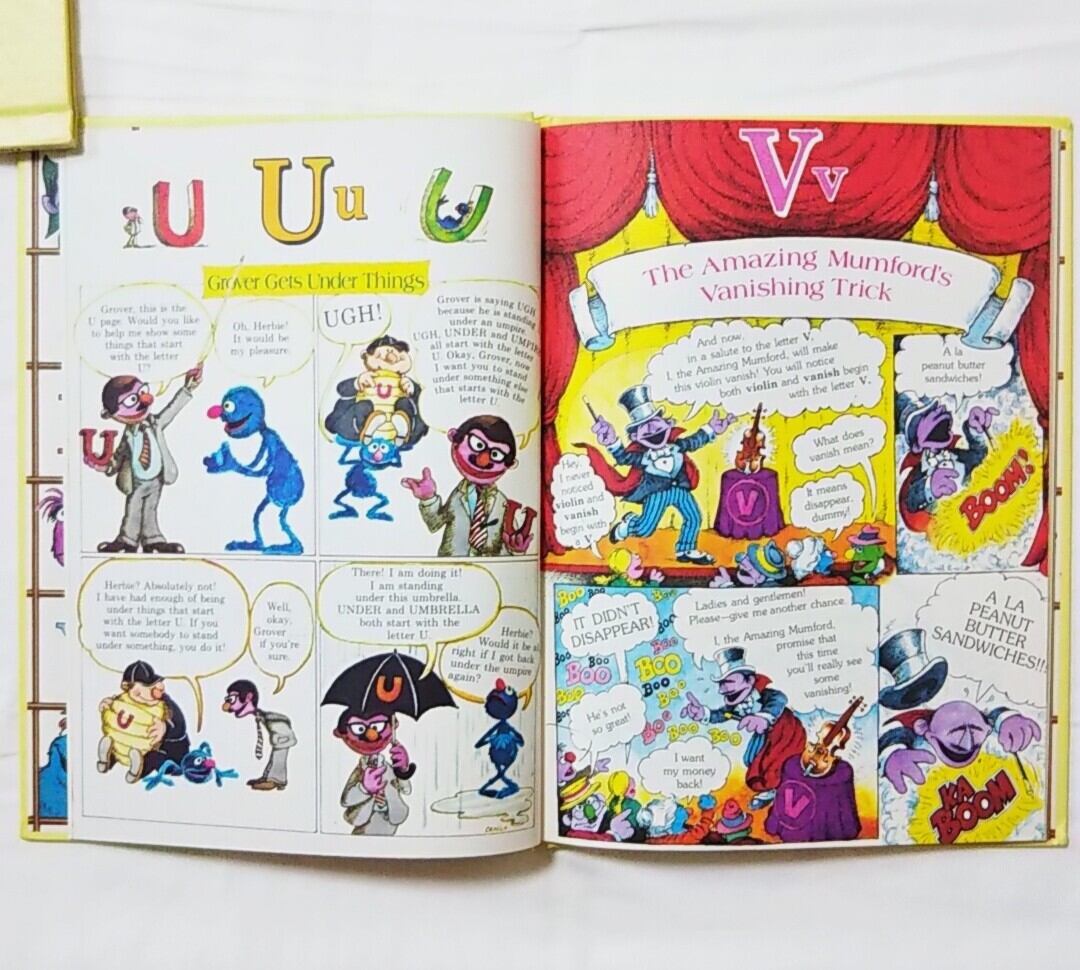 U
U u
U
Grover Gets Under Things
Grover, this is the
U page. Would you like
to help me show some
things that start
with the letter
U?
Oh, Herbie!
It would be
my pleasure.
U
U
UGH!
Grover is saying UGH
because he is standing
under an umpire.
UGH, UNDER and UMPIRE
all start with the letter
U. Okay, Grover, now
I want you to stand
under something else
that starts with the
letter U.
U
U
Herbie? Absolutely not!
I have had enough of being
under things that start
with the letter U. If you
want somebody to stand
under something, you do it!
Well,
okay,
Grover
if you're
sure.
U
There! I am doing it!
I am standing
under this umbrella.
UNDER and UMBRELLA
both start with the
letter U.
Herbie?
Would it be all
right if I got back
under the umpire
again?
U
V v
The Amazing Mumford's
Vanishing Trick
And now,
in a salute to the letter V,
I, the Amazing Mumford, will make
this violin vanish! You will notice
both violin and vanish begin
with the letter V.
Hey,
I never
noticed
violin and
vanish
begin with
a V
What does
vanish mean?
It means
disappear,
dummy!
V
A la
peanut butter
sandwiches!
BOOM!
IT DIDN'T
DISAPPEAR!
Boo Boo Boo
Boo Boo Boo
Boo Boo Boo
He's not
so great!
Ladies and gentlemen!
Please—give me another chance.
I, the Amazing Mumford,
promise that
this time
you'll really see
some
vanishing!
I want
my money
back!
V
A LA
PEANUT
BUTTER
SANDWICHES!!
KA
BOOM